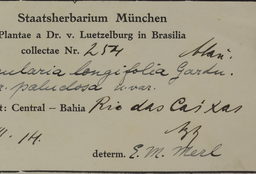 Staatsherbarium München
Plantae a Dr. v. Luetzelburg in Brasilia
collectae Nr. 254
ularia longifolia Gardn.
r. paludosa n. var.
t: Central – Bahia Rio das Caixas
. 14.
determ. E. M. Merl